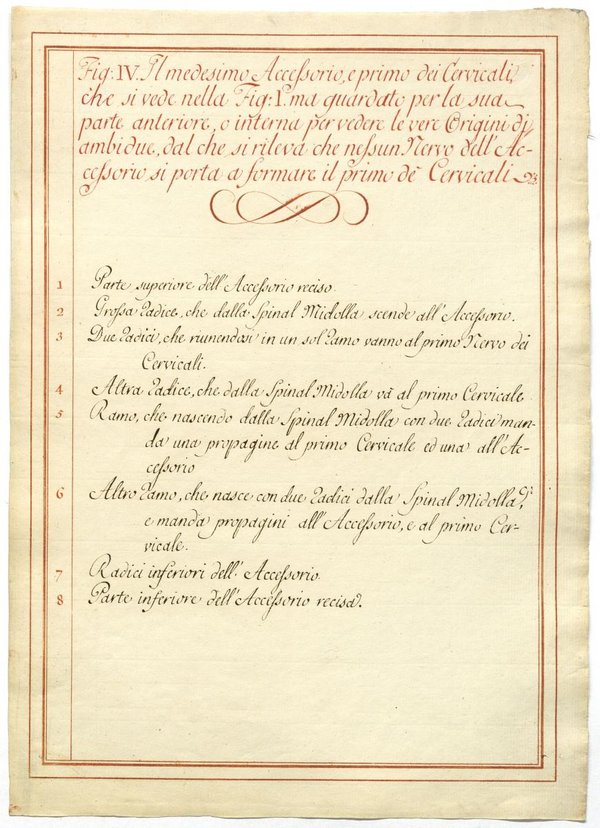 Fig: IV. Il medesimo Accessorio, e primo dei Cervicali,
che si vede nella Fig: I. ma guardato per la sua
parte anteriore, o interna per vedere le vere Origini di
ambidue, dal che si rileva che nessun Nervo dell'Ac-
cessorio si porta a formare il primo de' Cervicali
1 Parte superiore dell'Accessorio reciso.
2 Grossa Radice, che dalla Spinal Midolla scende all'Accessorio.
3 Due Radici, che riunendosi in un sol Ramo vanno al primo Nervo dei
Cervicali.
4 Altra Radice, che dalla Spinal Midolla và al primo Cervicale
5 Ramo, che nascendo dalla Spinal Midolla con due Radici man-
da una propagine al primo Cervicale ed una all'Ac-
cessorio
6 Altro Ramo, che nasce con due Radici dalla Spinal Midolla,
e manda propagini all'Accessorio, e al primo Cer-
vicale.
7 Radici inferiori dell'Accessorio.
8 Parte inferiore dell'Accessorio recisa.